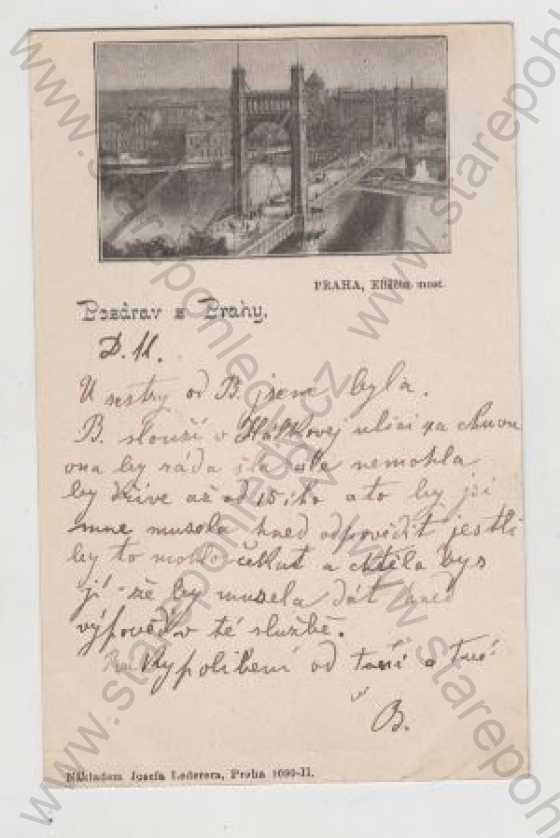 PRAHA, Eliščin most.
Pozdrav z Prahy.
D. M.
U sestry od B. jsem byla.
B. slouží v Hálkovej ulici za chuvu
ona by ráda šla ale nemohla
by dříve až od 15. a to by jsi
mne musela hned odpovědít jestli
by to mohlo čekat a chtěla bys
jí že by musela dát hned
výpověď v té službě.
vypolíbení od tvojí
B.
Nákladem Josefa Lederera, Praha 1090-II.
www.starepohledy.cz